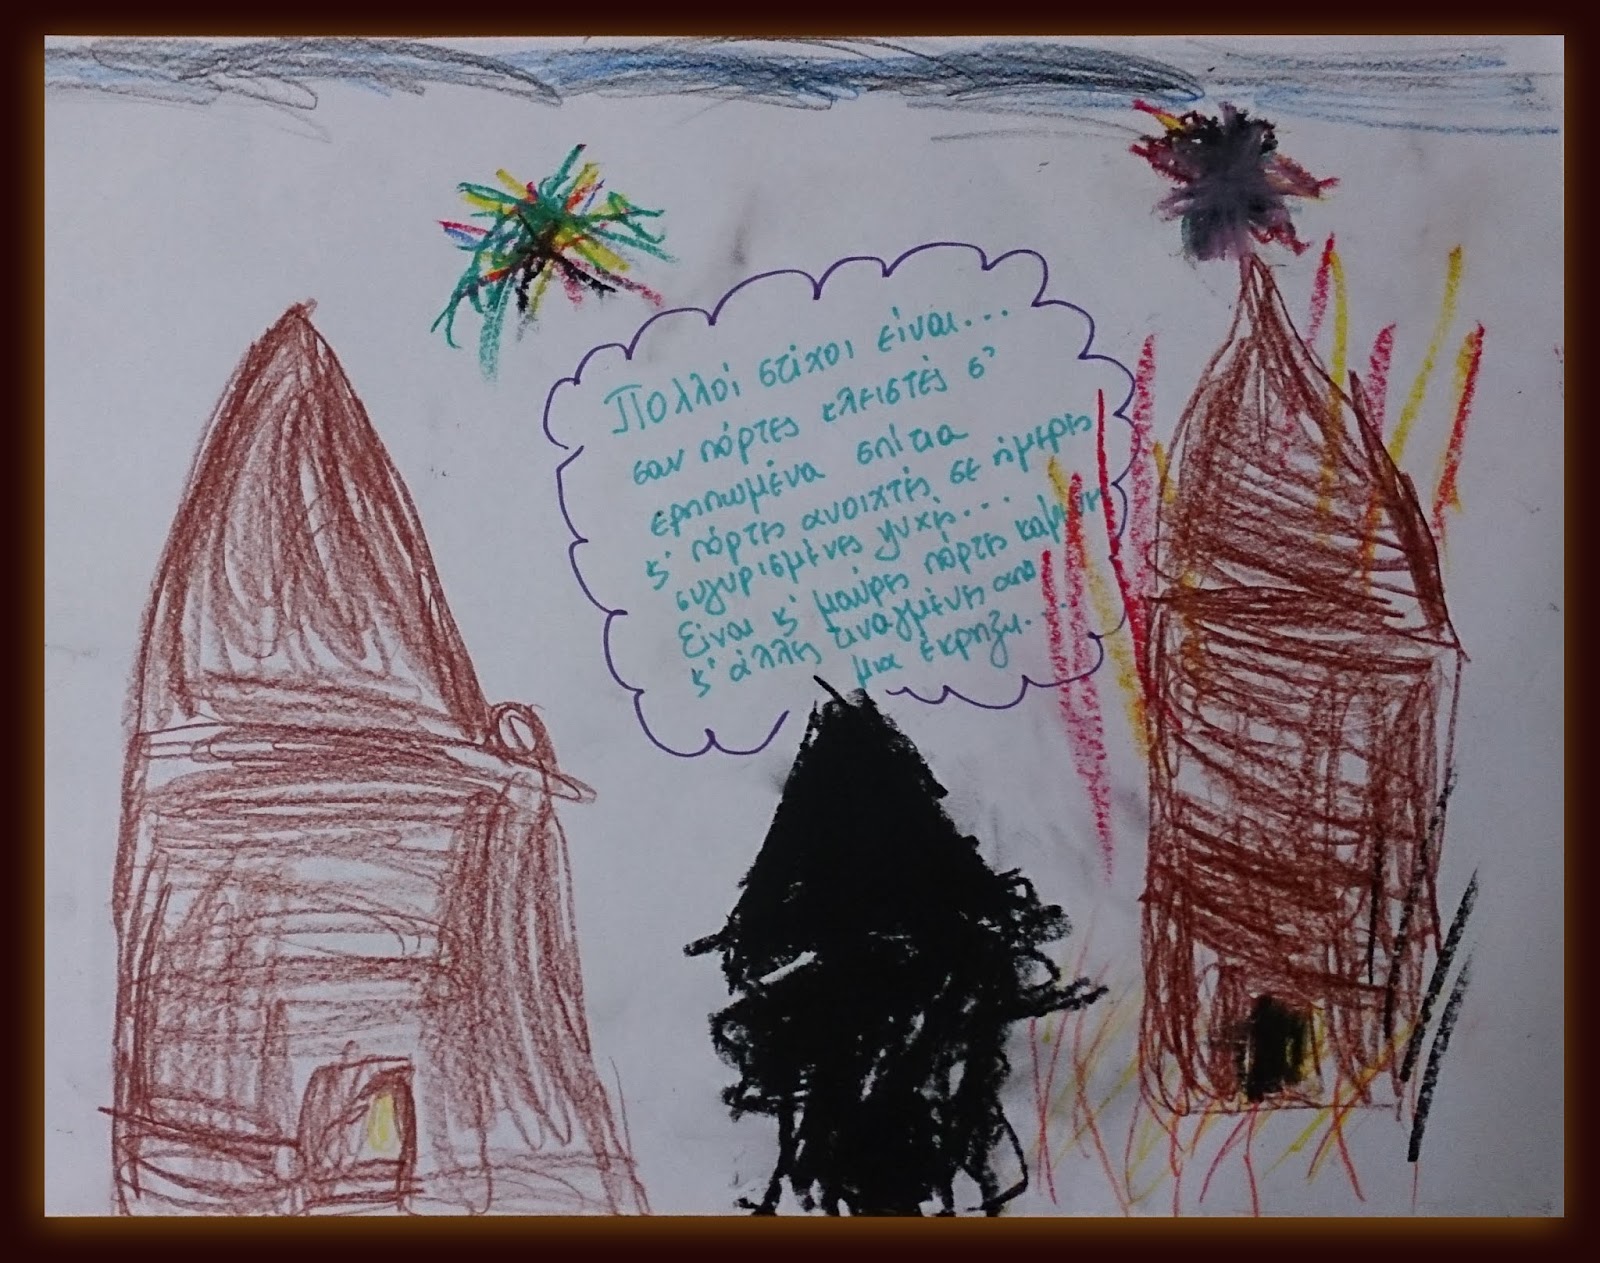 Πολλοί στίχοι είναι...
σαν πόρτες κλειστές σ'
ερηπωμένα σπίτια
κ' πόρτες ανοιχτές σε ήμερες
συγυρισμένες ψυχές...
Είναι κ' μαύρες πόρτες καμμένες
κ' άλλες τιναγμένες από
μια έκρηξη...